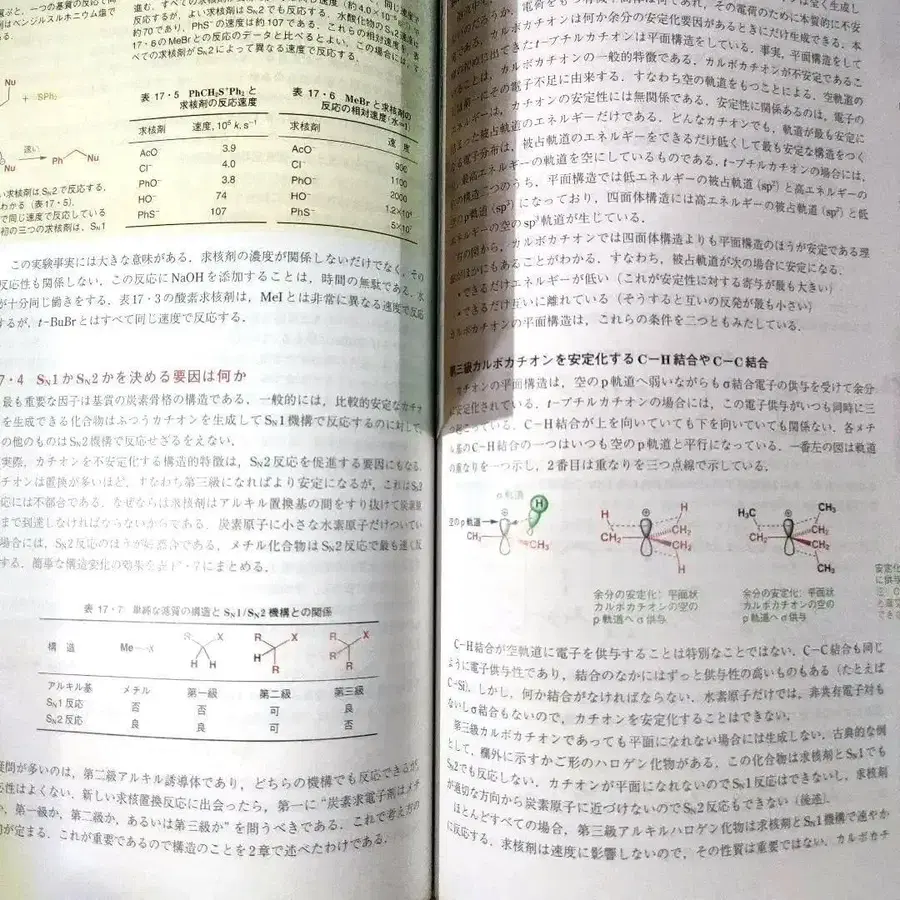 応は
Nu
+ SPh₂
速い
Ph Nu
い求核剤はSN2で反応する.
わかる (表17・5).
で同じ速度で反応している
初の三つの求核剤は, SN1
反応するが, よい求核剤はSN2でも反応する.
約70であり, PhS⁻の速度は約107である.
17・6のMeBrとの反応のデータと比べるとよい.
べての求核剤がSN2によって異なる速度で反応する.
表 17・5 PhCH₂S⁺Ph₂と
求核剤の反応速度
求核剤 速度, 10⁵ k, s⁻¹
AcO⁻ 3.9
Cl⁻ 4.0
PhO⁻ 3.8
HO⁻ 74
PhS⁻ 107
表 17・6 MeBrと求核剤の
反応の相対速度(水=1)
求核剤 速度
AcO⁻ 900
Cl⁻ 1100
PhO⁻ 2000
HO⁻ 1.2×10⁴
PhS⁻ 5×10⁷
この実験事実には大きな意味がある. 求核剤の濃度が関係しないだけでなく, その
反応性も関係しない. この反応にNaOHを添加することは, 時間の無駄である. 水
が十分同じ働きをする. 表17・3の酸素求核剤は, MeIとは非常に異なる速度で反応
するが, t-BuBrとはすべて同じ速度で反応する.
7・4 SN1かSN2かを決める要因は何か
最も重要な因子は基質の炭素骨格の構造である. 一般的には, 比較的安定なカチオ
を生成できる化合物はふつうカチオンを生成してSN1機構で反応するのに対して,
の他のものはSN2機構で反応せざるをえない.
実際, カチオンを不安定化する構造的特徴は, SN2反応を促進する要因にもなる.
チオンは置換が多いほど, すなわち第三級になればより安定になるが, これはSN2
応には不都合である. なぜならば求核剤はアルキル置換基の間をすり抜けて炭素原
まで到達しなければならないからである. 炭素原子に小さな水素原子だけついてい
場合には, SN2反応のほうが好都合である, メチル化合物はSN2反応で最も速く反
する. 簡単な構造変化の効果を表17・7にまとめる.
表 17・7 単純な基質の構造とSN1/SN2機構との関係
構造 Me X R X H H R X H R R X R R
アルキル基 メチル 第一級 第二級 第三級
SN1反応 否 否 可 良
SN2反応 良 良 可 否
疑問が多いのは, 第二級アルキル誘導体であり, どちらの機構でも反応できるが,
応性はよくない. 新しい求核置換反応に出会ったら, 第一に“炭素求電子剤はメチ
か, 第一級か, 第二級か, あるいは第三級か”を問うべきである. これで考え方の
が定まる. これが重要であるので構造のことを2章で述べたわけである.
カルボカチオンは何か余分の安定化要因があるときだけ生成できる. 本
t-ブチルカチオンは平面構造をしている. 事実, 平面構造をして
ることは, カルボカチオンの一般的な特徴である. カルボカチオンが不安定であるこ
は第一にその電子不足に由来する. すなわち空の軌道をもつことによる. 空軌道の
エネルギーは, カチオンの安定性には無関係である. 安定性に関係あるのは, 電子の
詰まった被占軌道のエネルギーだけである. どんなカチオンでも, 軌道が最も安定に
なる電子分布は, 被占軌道のエネルギーをできるだけ低くして最も安定な構造をつく
り, 最高エネルギーの軌道を空にしているものである. t-ブチルカチオンの場合には,
の構造二つのうち, 平面構造では低エネルギーの被占軌道 (sp²) と高エネルギーの
空のp軌道になっており, 四面体構造には高エネルギーの被占軌道 (sp³) と低
エネルギーの空のsp³軌道が生じている.
右の図から, カルボカチオンでは四面体構造よりも平面構造のほうが安定である理
由がほかにもあることがわかる. すなわち, 被占軌道が次の場合に安定になる.
・できるだけエネルギーが低い (これが安定性に対する寄与が最も大きい)
・できるだけ互いに離れている (そうすると互いの反発が最も小さい)
カルボカチオンの平面構造は, これらの条件を二つともみたしている.
第三級カルボカチオンを安定化するC−H結合やC−C結合
カチオンの平面構造は, 空のp軌道へ弱いながらもσ結合電子の供与を受けて余分
に安定化されている. t-ブチルカチオンの場合には, この電子供与がいつも同時に三
つ起こっている. C−H結合が上を向いていても下を向いていても関係ない. 各メチ
ル基のC−H結合の一つはいつも空のp軌道と平行になっている. 一番左の図は軌道
の重なりを一つ示し, 2番目は重なりを三つ点線で示している.
σ軌道
空のp軌道
H
CH₃ CH₃
H H CH₂ CH₂ CH₂ H
H₃C CH₃ CH₂ CH₂ CH₂ CH₃
余分の安定化: 平面状
カルボカチオンの空の
p軌道へσ供与
余分の安定化: 平面状
カルボカチオンの空の
p軌道へσ供与
安定化
に供与
C−H結合が空軌道に電子を供与することは特別なことではない. C−C結合も同じ
ように電子供与性であり, 結合のなかにはずっと供与性の高いものもある (たとえば
C−Si). しかし, 何か結合がなければならない. 水素原子だけでは, 非共有電子対も
ないしσ結合もないので, カチオンを安定化することはできない.
第三級カルボカチオンであっても平面になれない場合には生成しない. 古典的な例
として, 欄外に示すかご形のハロゲン化物がある. この化合物は求核剤とSN1でも
SN2でも反応しない. カチオンが平面になれないのでSN1反応はできないし, 求核剤
が適切な方向から炭素原子に近づけないのでSN2反応もできない (後述).
ほとんどすべての場合, 第三級アルキルハロゲン化物は求核剤とSN1機構で速やか
に反応する. 求核剤は速度に影響しないので, その性質は重要ではない. カルボカチ